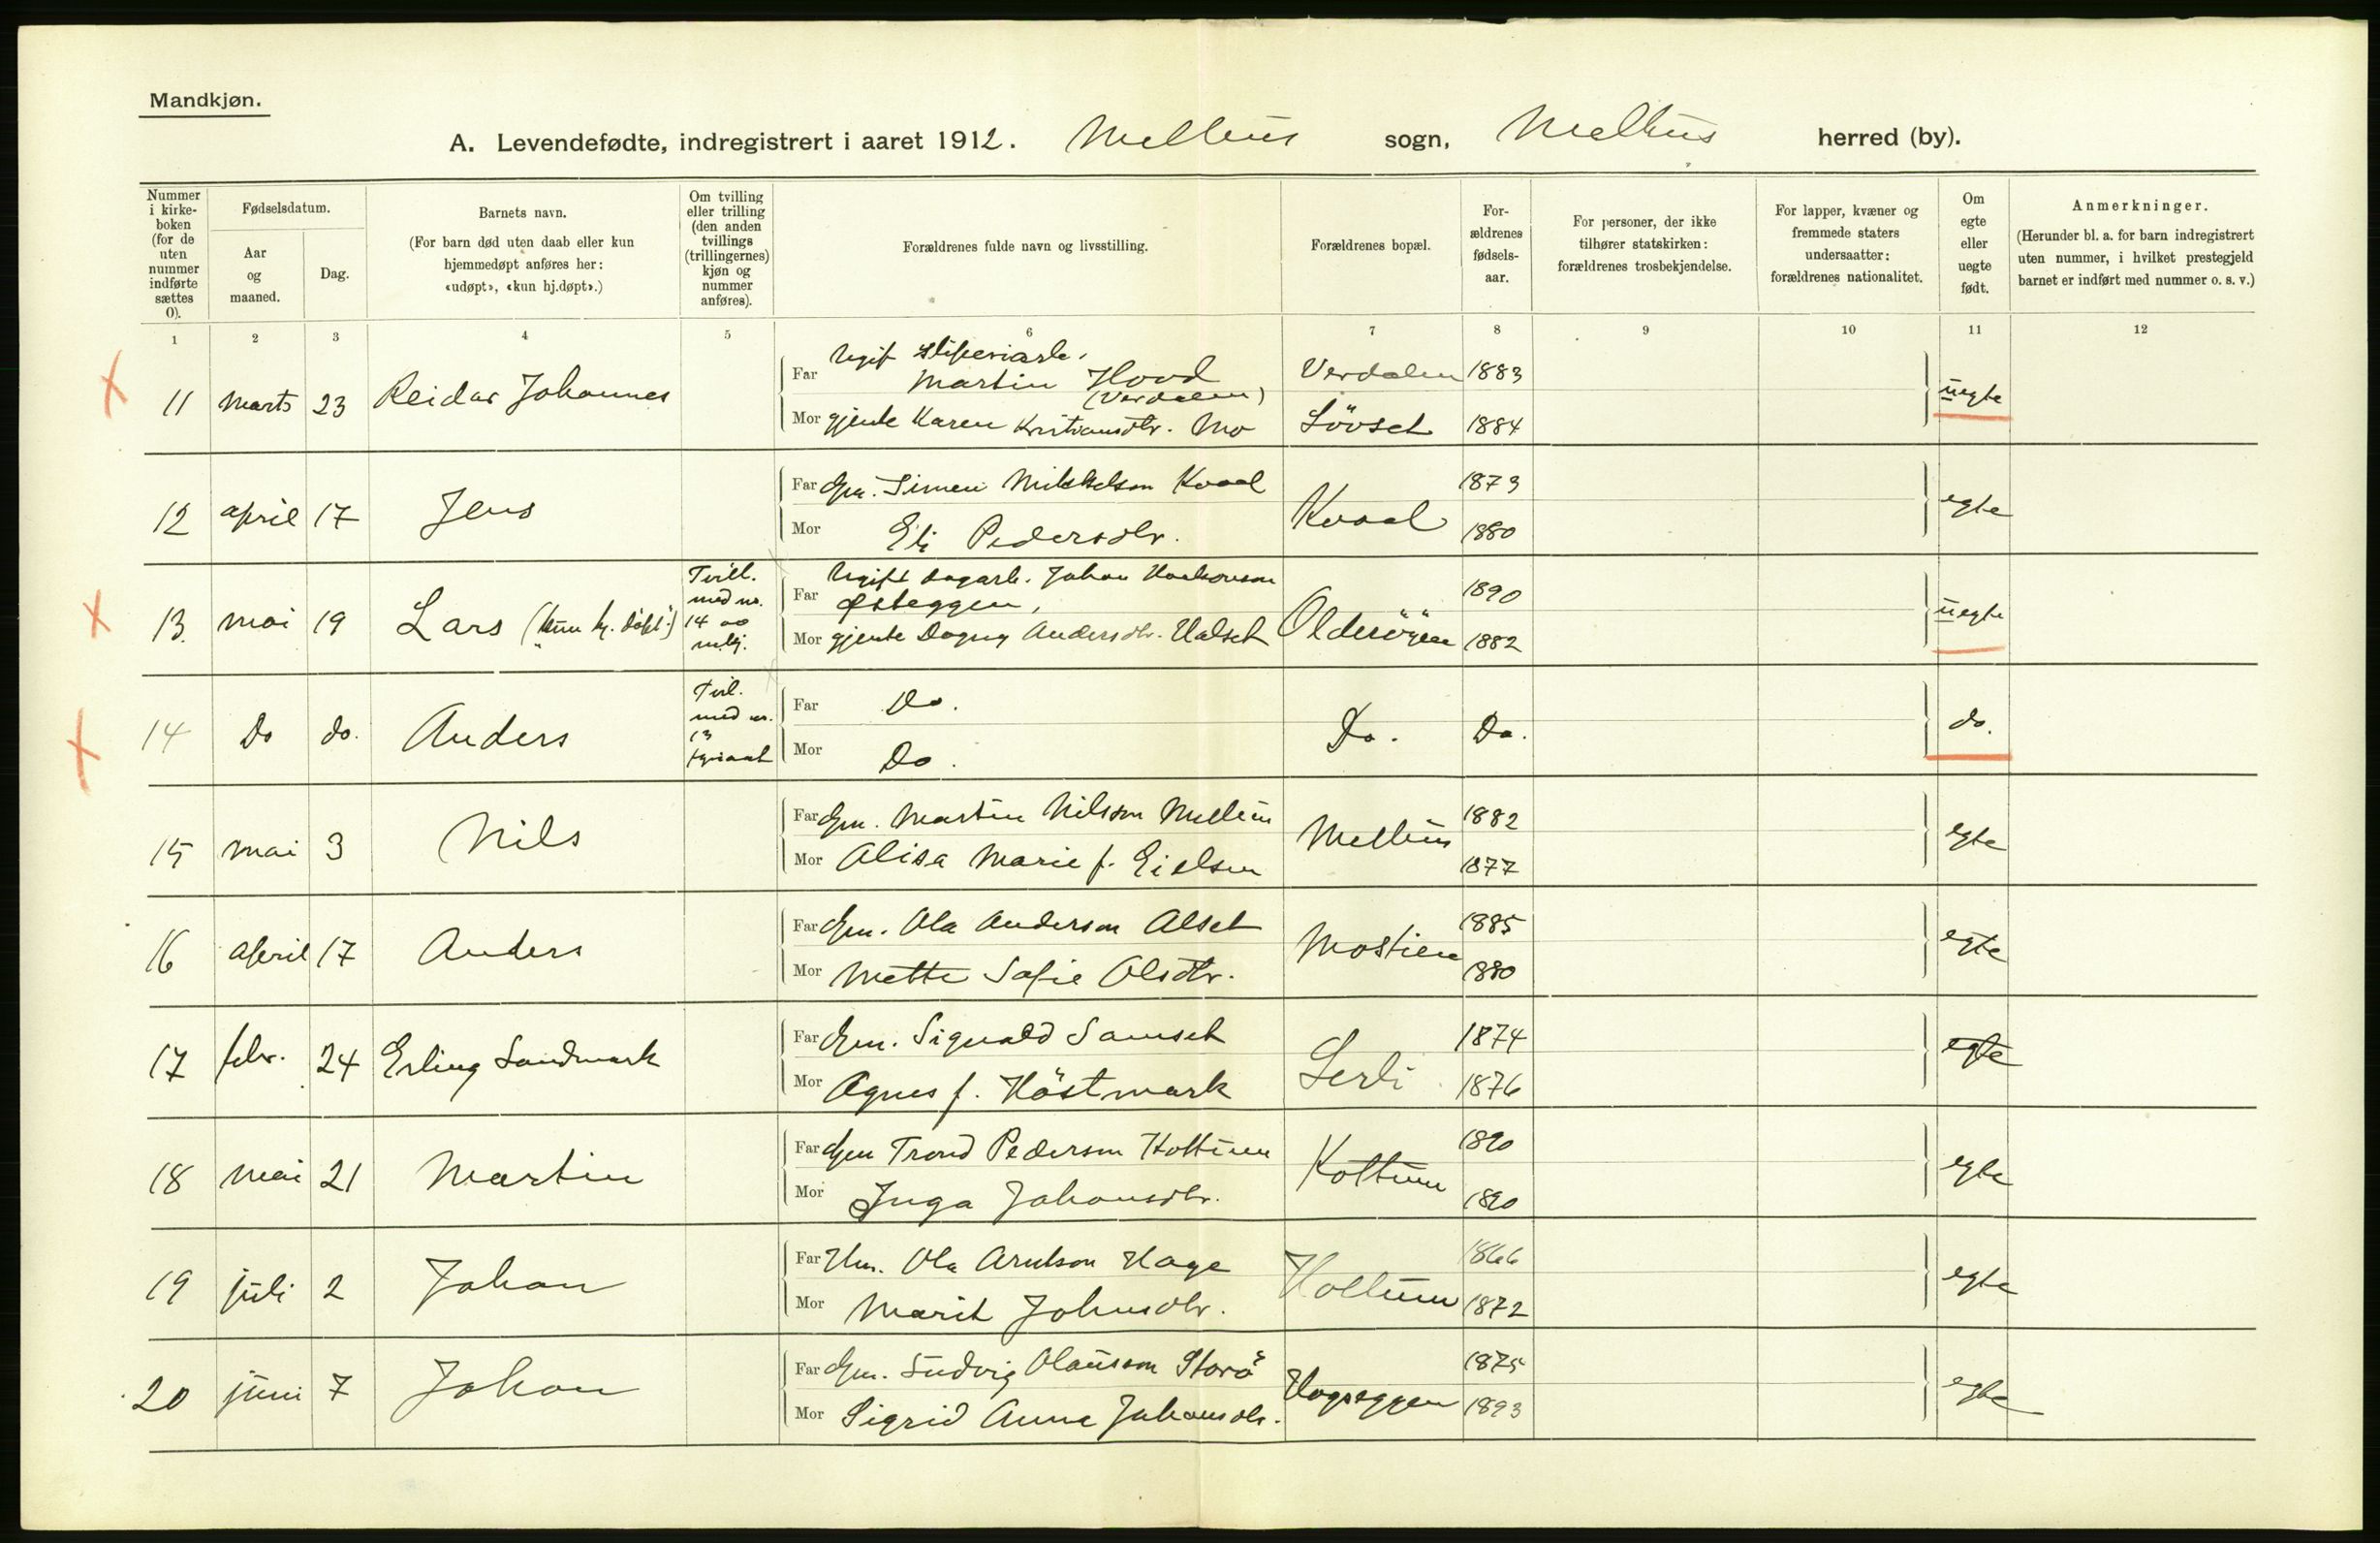 Mandkjøn.
A. Levendefødte, indregistrert i aaret 1912. Melhus sogn, Melhus herred (by).
Nummer i kirke-boken (for de uten nummer indførte sættes 0).
Fødselsdatum.
Aar og maaned.
Dag.
Barnets navn.
(For barn død uten daab eller kun hjemmedøpt anføres her: «udøpt», «kun hj.døpt».)
Om tvilling eller trilling (den anden tvillings (trillingernes) kjøn og nummer anføres).
Forældrenes fulde navn og livsstilling.
Forældrenes bopæl.
For-ældrenes fødsels-aar.
For personer, der ikke tilhører statskirken: forældrenes trosbekjendelse.
For lapper, kvæner og fremmede staters undersaatter: forældrenes nationalitet.
Om egte eller uegte født.
Anmerkninger.
(Herunder bl. a. for barn indregistrert uten nummer, i hvilket prestegjeld barnet er indført med nummer o. s. v.)
1 2 3 4 5 6 7 8 9 10 11 12
11 marts 23 Reidar Johannes
Far Ugift
Martin Hood Verdalen 1883
(Verdalen)
Mor gjente Karen Kristiansdtr. Mo Lövset 1884
uegte
12 april 17 Jens
Far Gm. Simen Kvaal 1873
Mor Eli Pedersdtr. Kvaal 1880
egte
13. mai 19 Lars (kun hj. döpt.)
Tvill. med no. 14
Far Ugift dagarb. Johan Haakonson
Østeggen, 1890
Mor gjente Dagny Andersdtr. Halset Olderöyen 1882
uegte
14 Do do. Anders
Tvil. med nr. 13
Far Do.
Mor Do.
Do. Do.
do.
15 mai 3 Nils
Far Gm. Martin Nilsson Melhus 1882
Mor Alisa Marie f. Eidsen Melhus 1877
egte
16 april 17 Anders
Far Gm. Ola Anderson Alset 1885
Mor Mette Sofie Olsdtr. Mostien 1880
egte
17 febr. 24 Erling Sandmark
Far Gm. Sigvald Samset 1874
Mor Agnes f. Höstmark Lerli 1876
egte
18 mai 21 Martin
Far Gm Trond Pederson Kottum 1890
Mor Inga Johansdtr. Kottum 1890
egte
19 juli 2 Johan
Far Hm. Ola Arntson Hage 1866
Mor Marit Johnsdtr. Hollum 1872
egte
20 juni 7 Johan
Far Gm. Ludvig Olausson Storö 1875
Mor Sigrid Anna Johansdtr. Hogseggen 1893
egte